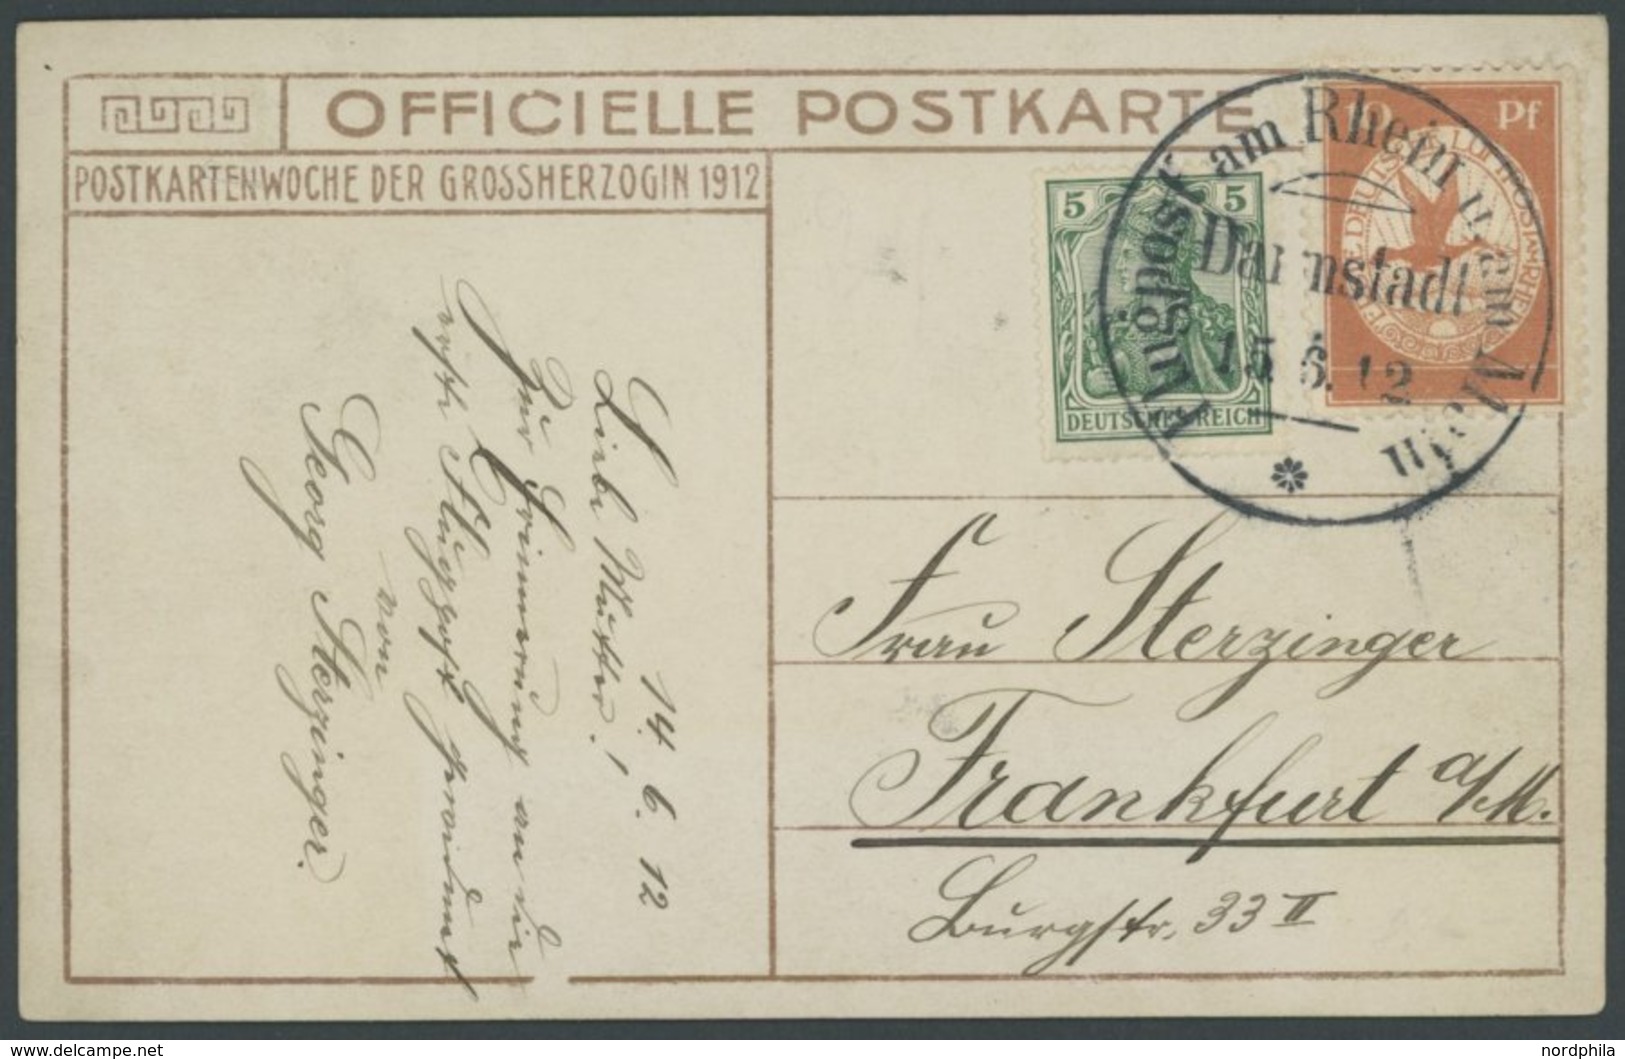 OFFICIELLE POSTKARTE
POSTKARTENWOCHE DER GROSSHERZOGIN 1912
5 5
DEUTSCHES REICH
10 Pf
Flugpost am Rhein u. am Main
Darmstadt
15.6.12
14. 6. 12
Liebe Mutter!
Zur Erinnerung an die
erste Flugpost gewidmet
von
Georg Sterzinger.
Frau Sterzinger
Frankfurt a/M.
Burgstr. 33 II
delcampe.net
nordphila